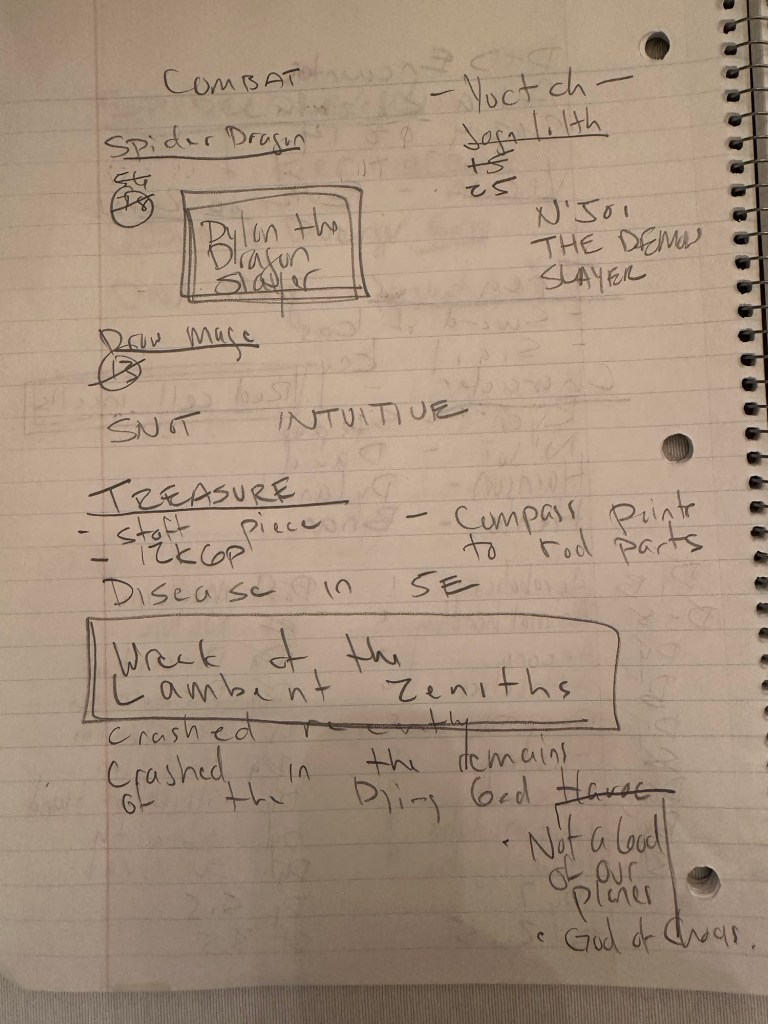 COMBAT
Spider Dragon
54
18
Dylan the
Dragon
Slayer
- Yuct ch -
+5
25
N'Joi
THE DEMON
SLAYER
Drow Mage
13
SNOT INTUITIVE
TREASURE
- staff piece
- 12K GP
- Compass points
to rod parts
Disease in 5E
Wreck of the
Lambent Zeniths
crashed recently
Crashed in the domains
of the Dying God Havoc
• Not a God
of our
planes
• God of Chaos.